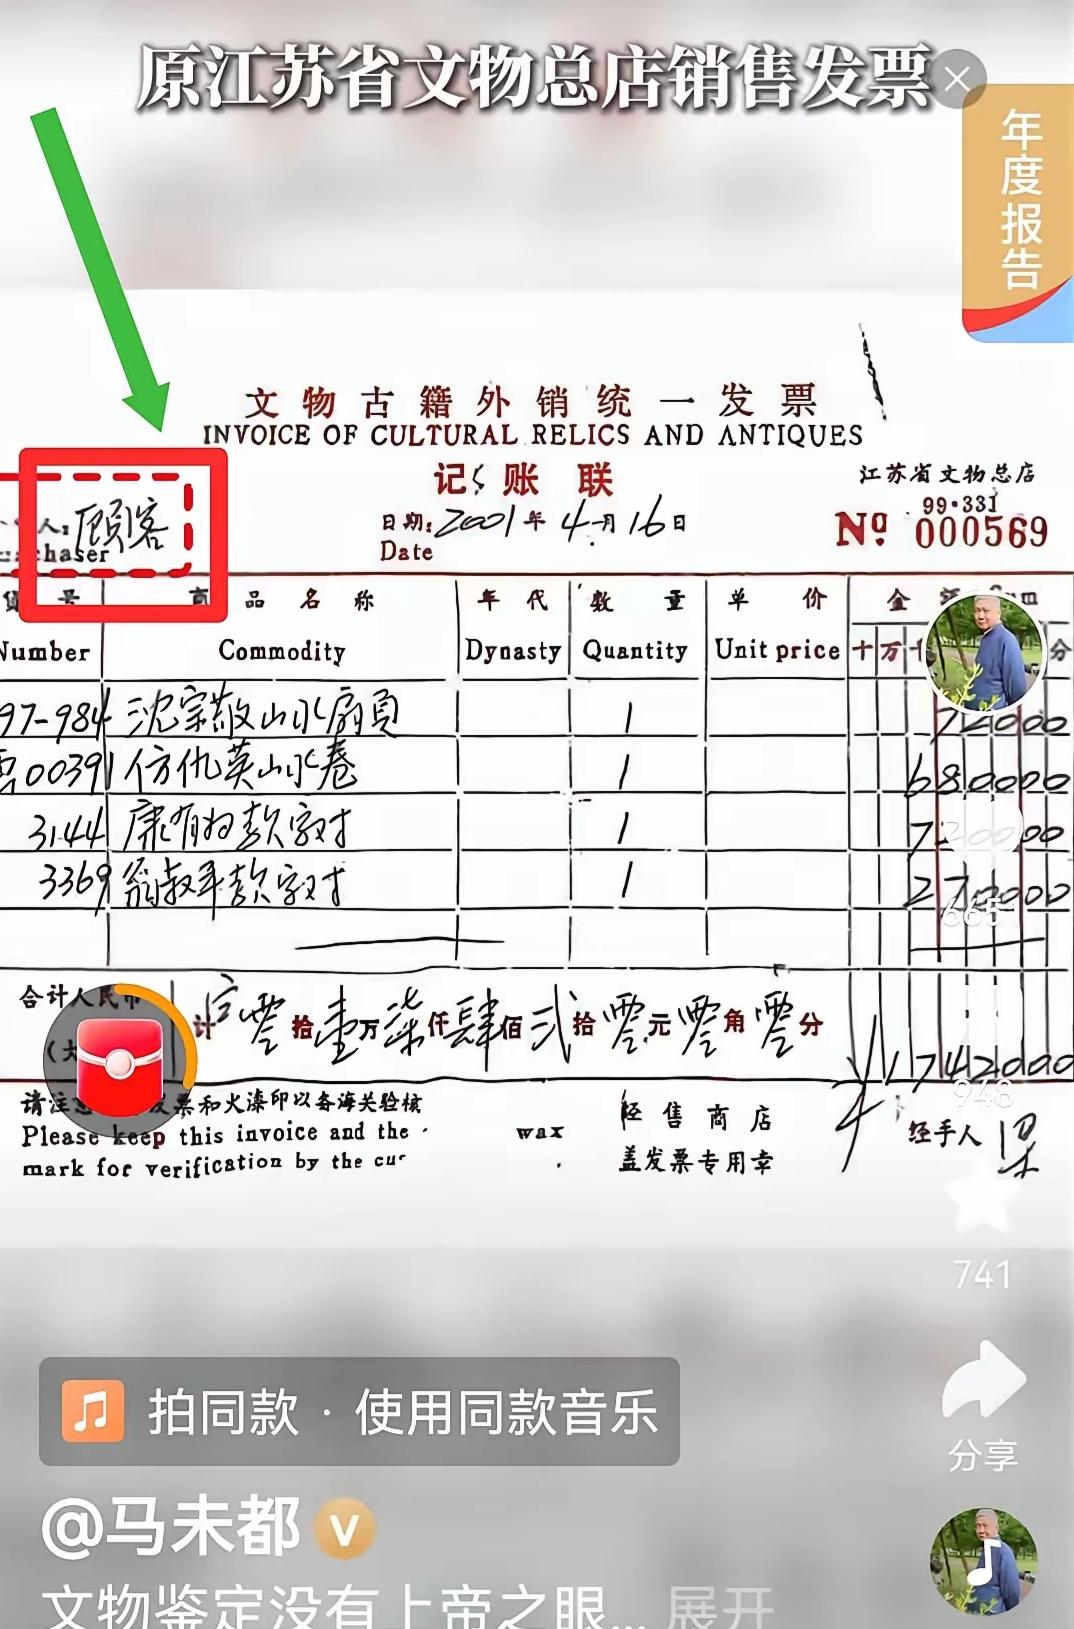 原江苏省文物总店销售发票
年度报告
文物古籍外销统一发票
INVOICE OF CULTURAL RELICS AND ANTIQUES
记账联
江苏省文物总店
99·331
人:顾客
chaser
日期:2001年4月16日
Date
Nº 000569
号 商品名称 年代 数量 单价 金
Number Commodity Dynasty Quantity Unit price 十万 分
97-984 沈宗敬山水扇页 1
00391 仿仇英山水卷 1 680000
3144 康有为款字对 1
3369 翁叔平款字对 1
合计人民币
零拾壹万柒仟肆佰贰拾零元零角零分
¥1742000
请注 发票和火漆印以备海关验核
Please keep this invoice and the
wax
mark for verification by the cu
经售商店
盖发票专用章
经手人 梁
665
948
741
分享
拍同款 · 使用同款音乐
@马未都
文物鉴定没有上帝之眼... 展开